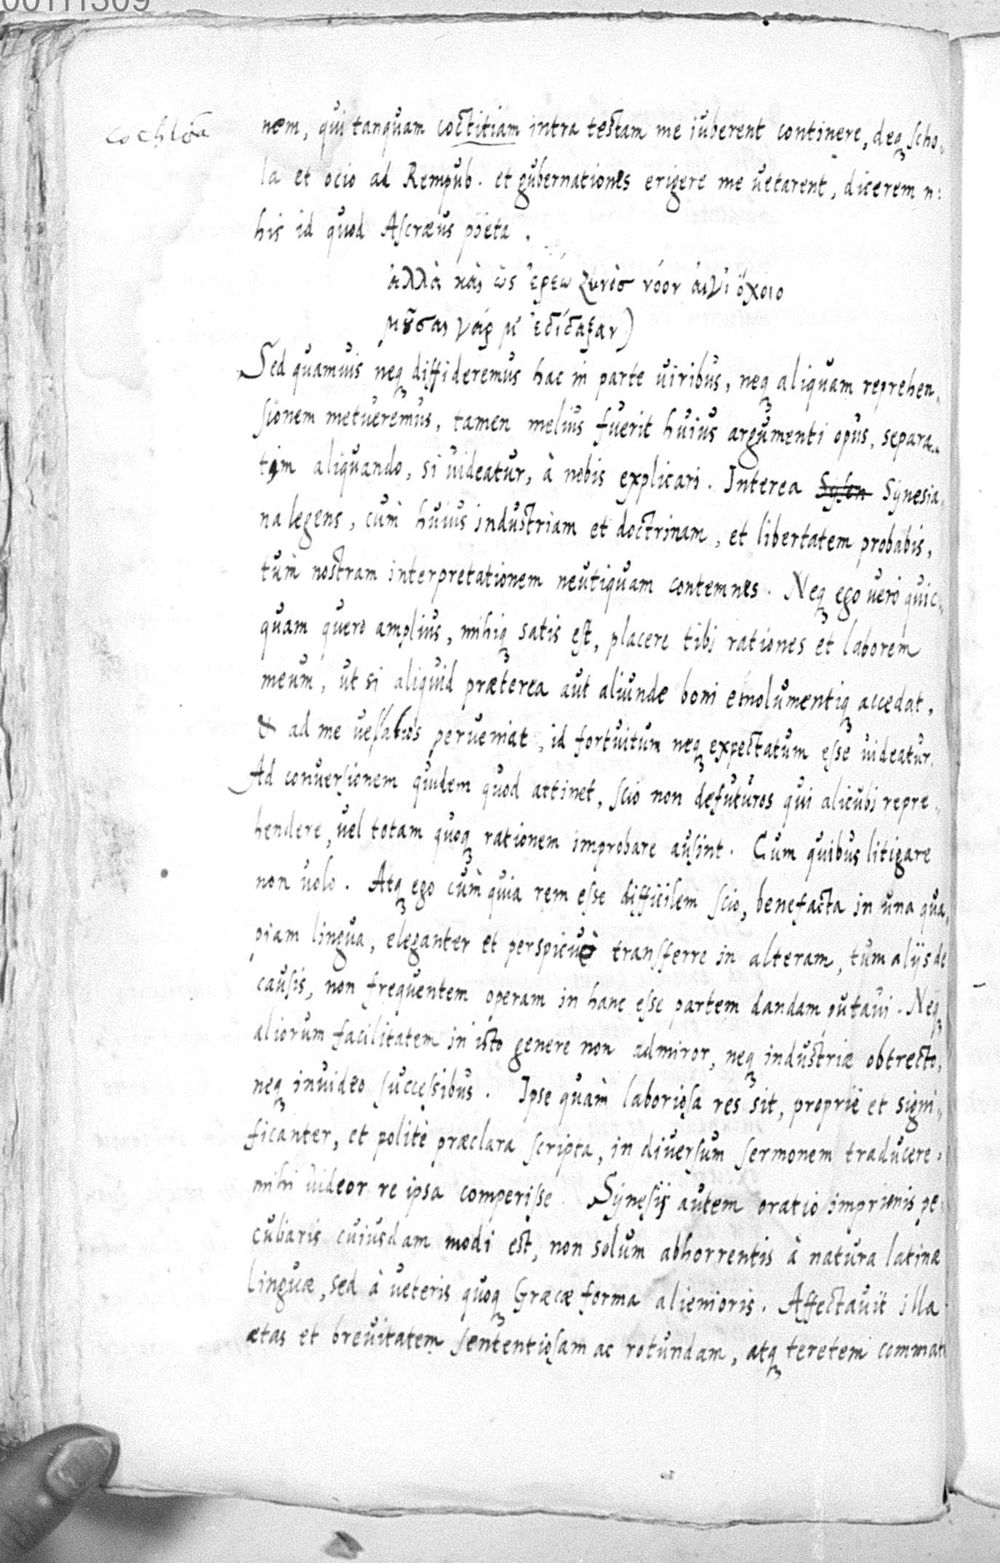 00111309
cochlea
nem, qui tanquam coctitiam intra testam me iuberent continere, deq scho-
la et ocio ad Rempub. et gubernationes erigere me uetarent, dicerem n:
his id quod Ascræus pöeta.
ἀλλὰ καὶ ὣς ἐρέω ζηνὸσ νόον αἰγιόχοιο
μοῦσαι γάρ μ' ἐδίδαξαν)
Sed quamuis neq diffideremus hac in parte uiribus, neq aliquam reprehen-
sionem metueremus, tamen melius fuerit huius argumenti opus, separa-
tim aliquando, si uideatur, à nobis explicari. Interea Synesia-
na legens, cùm huius industriam et doctrinam, et libertatem probabis,
tùm nostram interpretationem neutiquam contemnes. Neq ego uerò quic-
quam quero amplius, mihiq satis est, placere tibi rationes et laborem
meum, ut si aliquid præterea aut aliunde boni emolumentiq accedat,
& ad me perueniat, id fortuitum neq expectatum esse uideatur.
Ad conuersionem quidem quod attinet, scio non defuturos qui alicubi repre-
hendere, uel totam quoq rationem improbare ausint. Cum quibus litigare
non uolo. Atq ego cùm quia rem esse difficilem scio, benefacta in una qua-
piam lingua, eleganter et perspicuè transferre in alteram, tum alijs de
causis, non frequentem operam in hanc esse partem dandam putaui. Neq
aliorum facilitatem in isto genere non admiror, neq industriæ obtrecto,
neq inuideo successibus. Ipse quàm laboriosa res sit, propriè et signi-
ficanter, et politè præclara scripta, in diuersum sermonem traducere,
mihi uideor re ipsa comperisse. Synesij autem oratio imprimis pe-
culiaris cuiusdam modi est, non solum abhorrentis à natura latinæ
linguæ, sed à ueteris quoq Græcæ forma alienioris. Affectauit illa
ætas et breuitatem sententiosam ac rotundam, atq teretem commati